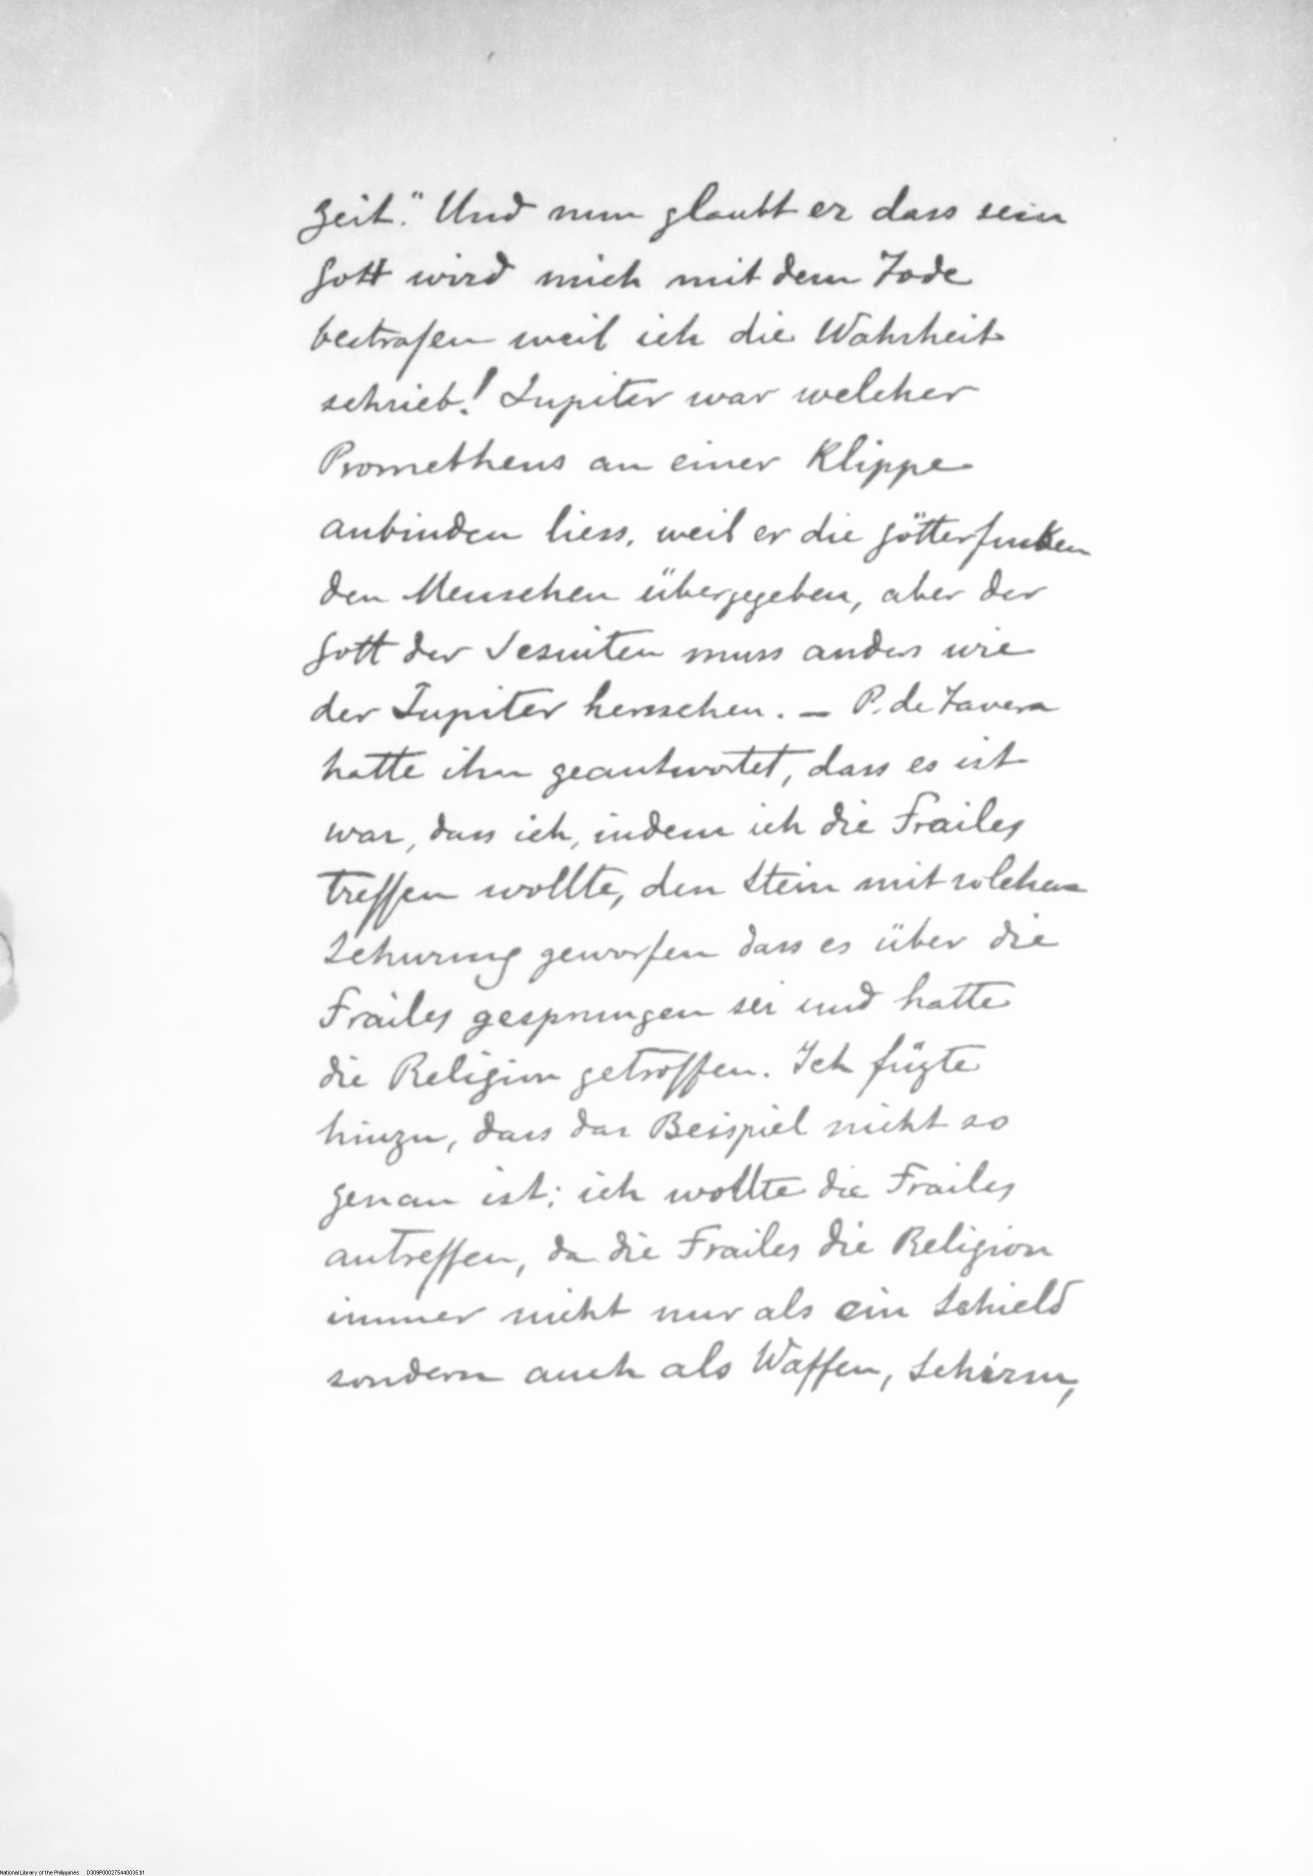 Zeit." Und nun glaubt er dass sein
Gott wird mich mit dem Tode
bestrafen weil ich die Wahrheit
schrieb! Jupiter war welcher
Prometheus an einer Klippe
anbinden liess, weil er die Götterfunken
den Menschen übergegeben, aber der
Gott der Jesuiten muss anders wie
der Jupiter herrschen. — P. de Tavera
hatte ihm geantwortet, dass es ist
war, dass ich, indem ich die Frailes
treffen wollte, den Stein mit solchem
Schwung geworfen dass es über die
Frailes gesprungen sei und hatte
die Religion getroffen. Ich fügte
hinzu, dass das Beispiel nicht so
genau ist; ich wollte die Frailes
antreffen, da die Frailes die Religion
immer nicht nur als ein Schield
sondern auch als Waffen, Schirm,
National Library of the Philippines